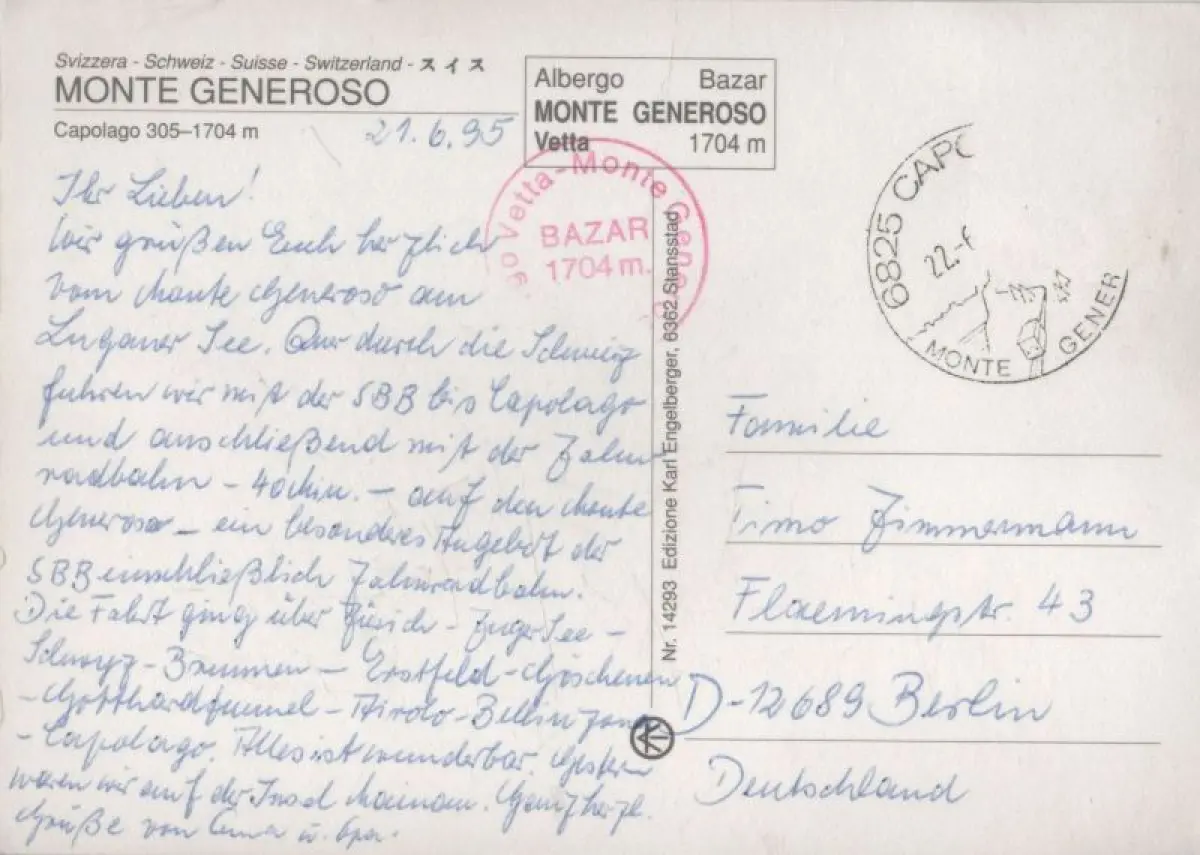 Svizzera - Schweiz - Suisse - Switzerland - スイス
MONTE GENEROSO
Capolago 305–1704 m
21.6.95
Albergo Bazar
MONTE GENEROSO
Vetta 1704 m
Vetta-Monte Gene
BAZAR
1704 m.
6825 CAPO
22.-6
MONTE GENER
Ihr Lieben!
Wir grüßen Euch herzlich
vom Monte Generoso am
Luganer See. Quer durch die Schweiz
fuhren wir mit der SBB bis Capolago
und anschließend mit der Zahn-
radbahn – 40 Min. – auf den Monte
Generoso – ein besonderes Angebot der
SBB einschließlich Zahnradbahn.
Die Fahrt ging über Zürich - Zuger See -
Schwyz - Brunnen - Erstfeld - Göschenen
- Gotthardtunnel - Airolo - Bellinzona
- Capolago. Alles ist wunderbar. Gestern
waren wir auf der Insel Mainau. Ganz herzl.
Grüße von Oma u. Opa.
Nr. 14293 Edizione Karl Engelberger, 6362 Stansstad
Familie
Timo Zimmermann
Flaemingstr. 43
D-12689 Berlin
Deutschland